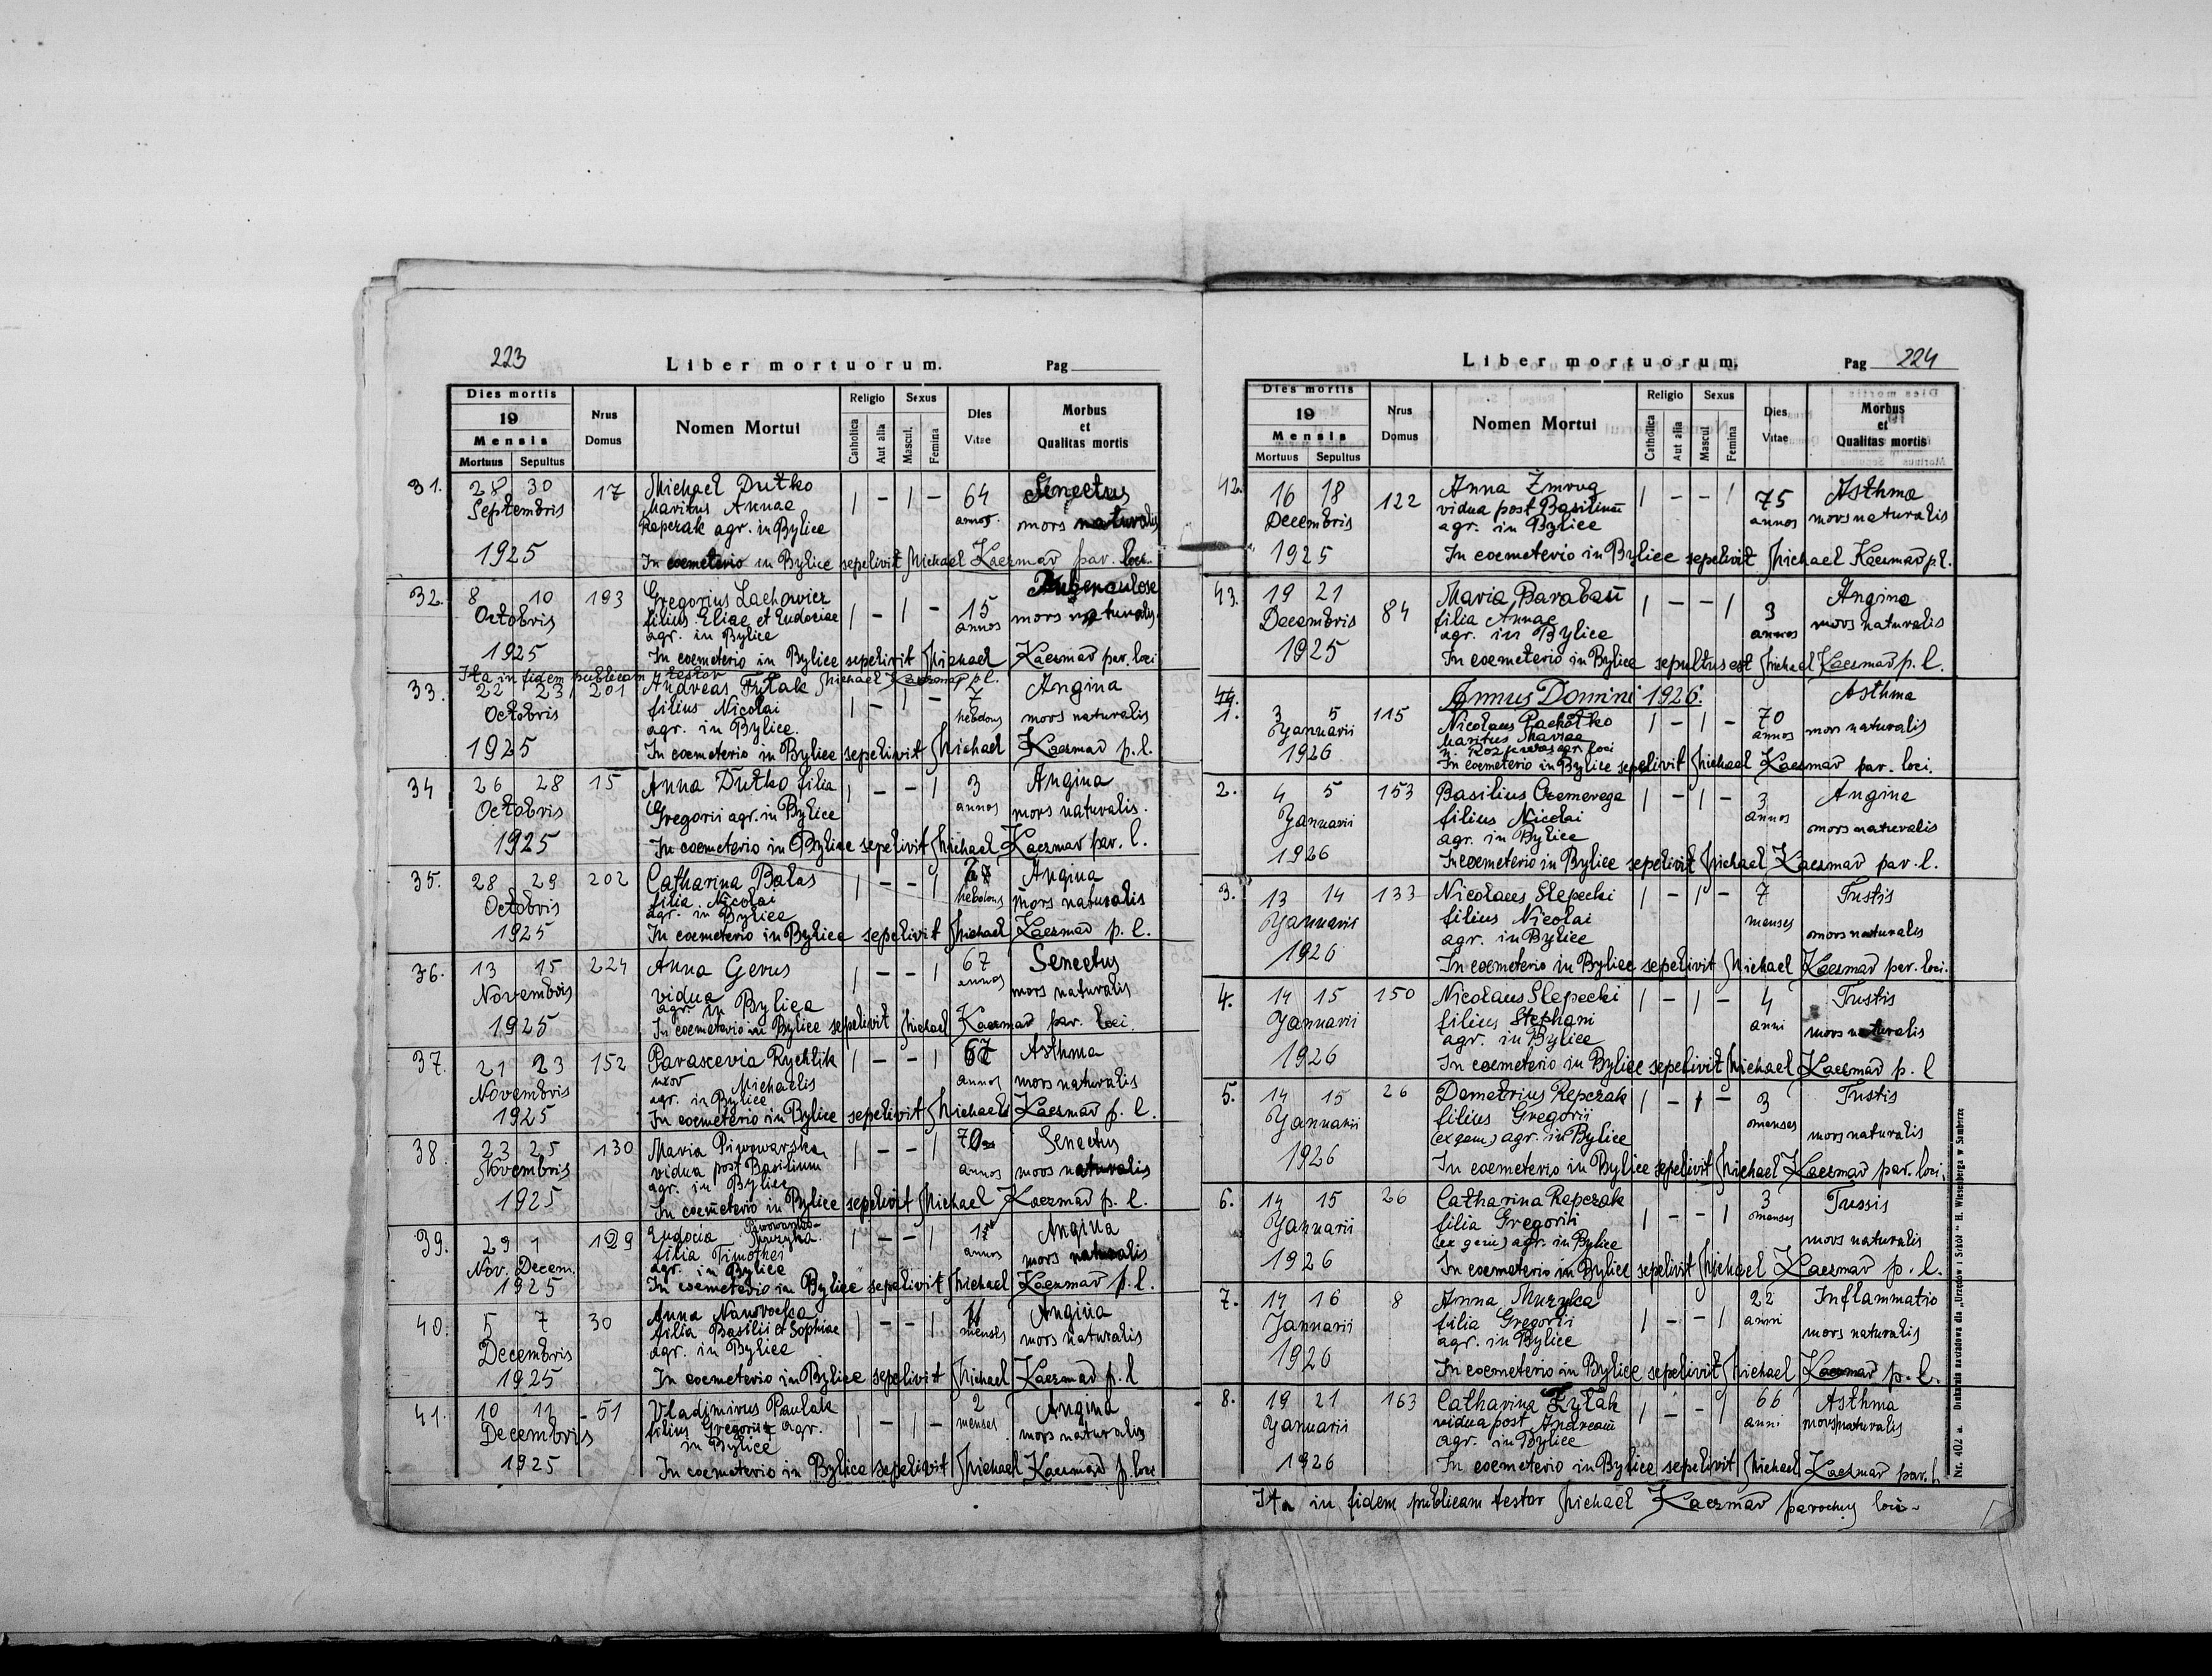 223
Liber mortuorum.
Pag
Dies mortis
19
Mensis
Mortuus Sepultus
Nrus Domus
Nomen Mortui
Religio
Catholica Aut alia
Sexus
Mascul. Femina
Dies Vitae
Morbus et Qualitas mortis
31. 28 30 17 Michael Dutko | - | - 64 Senectus
Septembris Maritus Annae annos. mors naturalis
Repczak agr. in Bylice
1925 In coemeterio in Bylice sepelivit Michael Kaczmar par. loci
32. 8 10 193 Gregorius Lachowicz | - | - 15 Tuberculose
Octobris filius Eliae et Eudociae annos mors naturalis
agr. in Bylice
1925 In coemeterio in Bylice sepelivit Michael Kaczmar par. loci
Ita in fidem publicam testor Michael Kaczmar pl.
33. 22 23 201 Andreas | - | - 7 Angina
Octobris filius Nicolai hebdoms mors naturalis
agr. in Bylice.
1925 In coemeterio in Bylice sepelivit Michael Kaczmar p.l.
34 26 28 15 Anna Dutko filia | - - | 3 Angina
Octobris Gregorii agr. in Bylice annos mors naturalis.
1925 In coemeterio in Bylice sepelivit Michael Kaczmar par. l.
35. 28 29 202 Catharina Balas | - - | Angina
Octobris filia Nicolai hebdoms mors naturalis
agr. in Bylice
1925 In coemeterio in Bylice sepelivit Michael Kaczmar p. l.
36. 13 15 224 Anna Gerus | - - | 67 Senectus
Novembris vidua annos mors naturalis
agr. in Bylice
1925 In coemeterio in Bylice sepelivit Michael Kaczmar par. loci.
37. 21 23 152 Parascevia Rychlik | - - | 67 Asthma
Novembris uxor Michaelis annos mors naturalis
agr. in Bylice
1925 In coemeterio in Bylice sepelivit Michael Kaczmar p. l.
38. 23 25 130 Maria Piwowarska | - - | 70 Senectus
Novembris vidua post Basilium annos mors naturalis
agr. in Bylice
1925 In coemeterio in Bylice sepelivit Michael Kaczmar p. l.
39. 29 1 129 Eudocia | - - | Angina
Nov. Decem. filia Timothei annos mors naturalis
agr. in Bylice
1925 In coemeterio in Bylice sepelivit Michael Kaczmar p. l.
40. 5 7 30 Anna Nawrocka | - - | 11 Angina
Decembris filia Basilii et Sophiae menses mors naturalis
agr. in Bylice
1925 In coemeterio in Bylice sepelivit Michael Kaczmar p. l
41. 10 11 51 Vladimirus Pawlak | - | - 2 Angina
Decembris filius Gregorii agr. menses mors naturalis
in Bylice
1925 In coemeterio in Bylice sepelivit Michael Kaczmar p. loci
Liber mortuorum.
Pag 224
Dies mortis
19
Mensis
Mortuus Sepultus
Nrus Domus
Nomen Mortui
Religio
Catholica Aut alia
Sexus
Mascul Femina
Dies Vitae
Morbus et Qualitas mortis
42. 16 18 122 Anna Żmrug | - - | 75 Asthma
Decembris vidua post Basilium annos mors naturalis
agr. in Bylice
1925 In coemeterio in Bylice sepelivit Michael Kaczmar pl.
43. 19 21 84 Maria Baraban | - - | 3 Angina
Decembris filia Annae annos mors naturalis
agr. in Bylice
1925 In coemeterio in Bylice sepultus est Michael Kaczmar p. l.
44. Annus Domini 1926. Asthma
1. 3 5 115 Nicolaus | - | - 70
Januarii Maritus Mariae annos mors naturalis
1926 agr. loci
In coemeterio in Bylice sepelivit Michael Kaczmar par. loci.
2. 4 5 153 Basilius Czemerega | - | - 3 Angina
Januarii filius Nicolai annos mors naturalis
agr. in Bylice
1926 In coemeterio in Bylice sepelivit Michael Kaczmar par. l.
3. 13 14 133 Nicolaus Slepecki | - | - 7 Tustis
Januaris filius Nicolai menses mors naturalis
agr. in Bylice
1926 In coemeterio in Bylice sepelivit Michael Kaczmar par. loci.
4. 14 15 150 Nicolaus Slepecki | - | - 4 Tustis
Januarii filius Stephani anni mors naturalis
agr. in Bylice
1926 In coemeterio in Bylice sepelivit Michael Kaczmar p. l
5. 14 15 26 Demetrius Repczak | - | - 3 Tustis
Januarii filius Gregorii menses mors naturalis
(ex gem) agr. in Bylice
1926 In coemeterio in Bylice sepelivit Michael Kaczmar par. loci,
6. 14 15 26 Catharina Repczak | - - | 3 Tussis
Januarii filia Gregorii menses mors naturalis
(ex gem) agr. in Bylice
1926 In coemeterio in Bylice sepelivit Michael Kaczmar p. l.
7. 14 16 8 Anna Muzyka | - - | 22 Inflammatio
Januarii filia Gregorii anni mors naturalis
agr. in Bylice
1926 In coemeterio in Bylice sepelivit Michael Kaczmar p. l.
8. 19 21 163 Catharina | - - | 66 Asthma
Januaris vidua post Andream anni mors naturalis
agr. in Bylice
1926 In coemeterio in Bylice sepelivit Michael Kaczmar par. l.
Ita in fidem publicam testor Michael Kaczmar parochus loci
Nr. 402 a. Drukarnia nakładowa dla „Urzędów i Szkół" H. Wiesenberga w Samborze